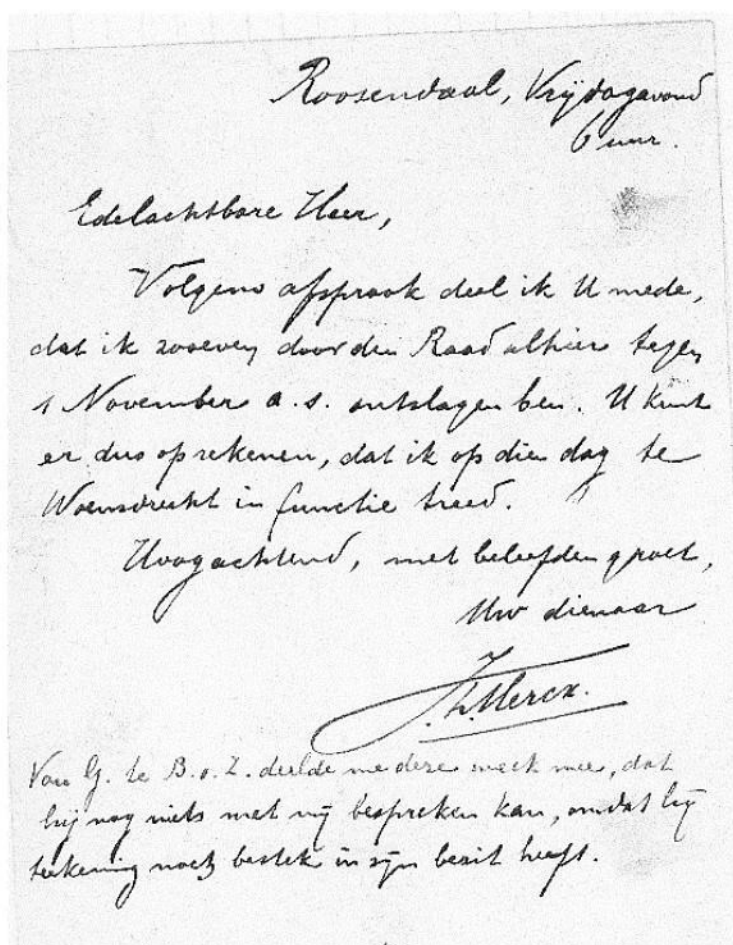 Roosendaal, Vrijdagavond
6 uur.
Edelachtbare Heer,
Volgens afspraak deel ik U mede,
dat ik zooeven door den Raad alhier tegen
1 November a.s. ontslagen ben. U kunt
er dus op rekenen, dat ik op dien dag te
Woensdrecht in functie treed.
Hoogachtend, met beleefden groet,
Uw dienaar
Mercx.
Van G. te B.o.Z. deelde me deze week mee, dat
hij nog niets met mij bespreken kan, omdat hij
teekening noch bestek in zijn bezit heeft.